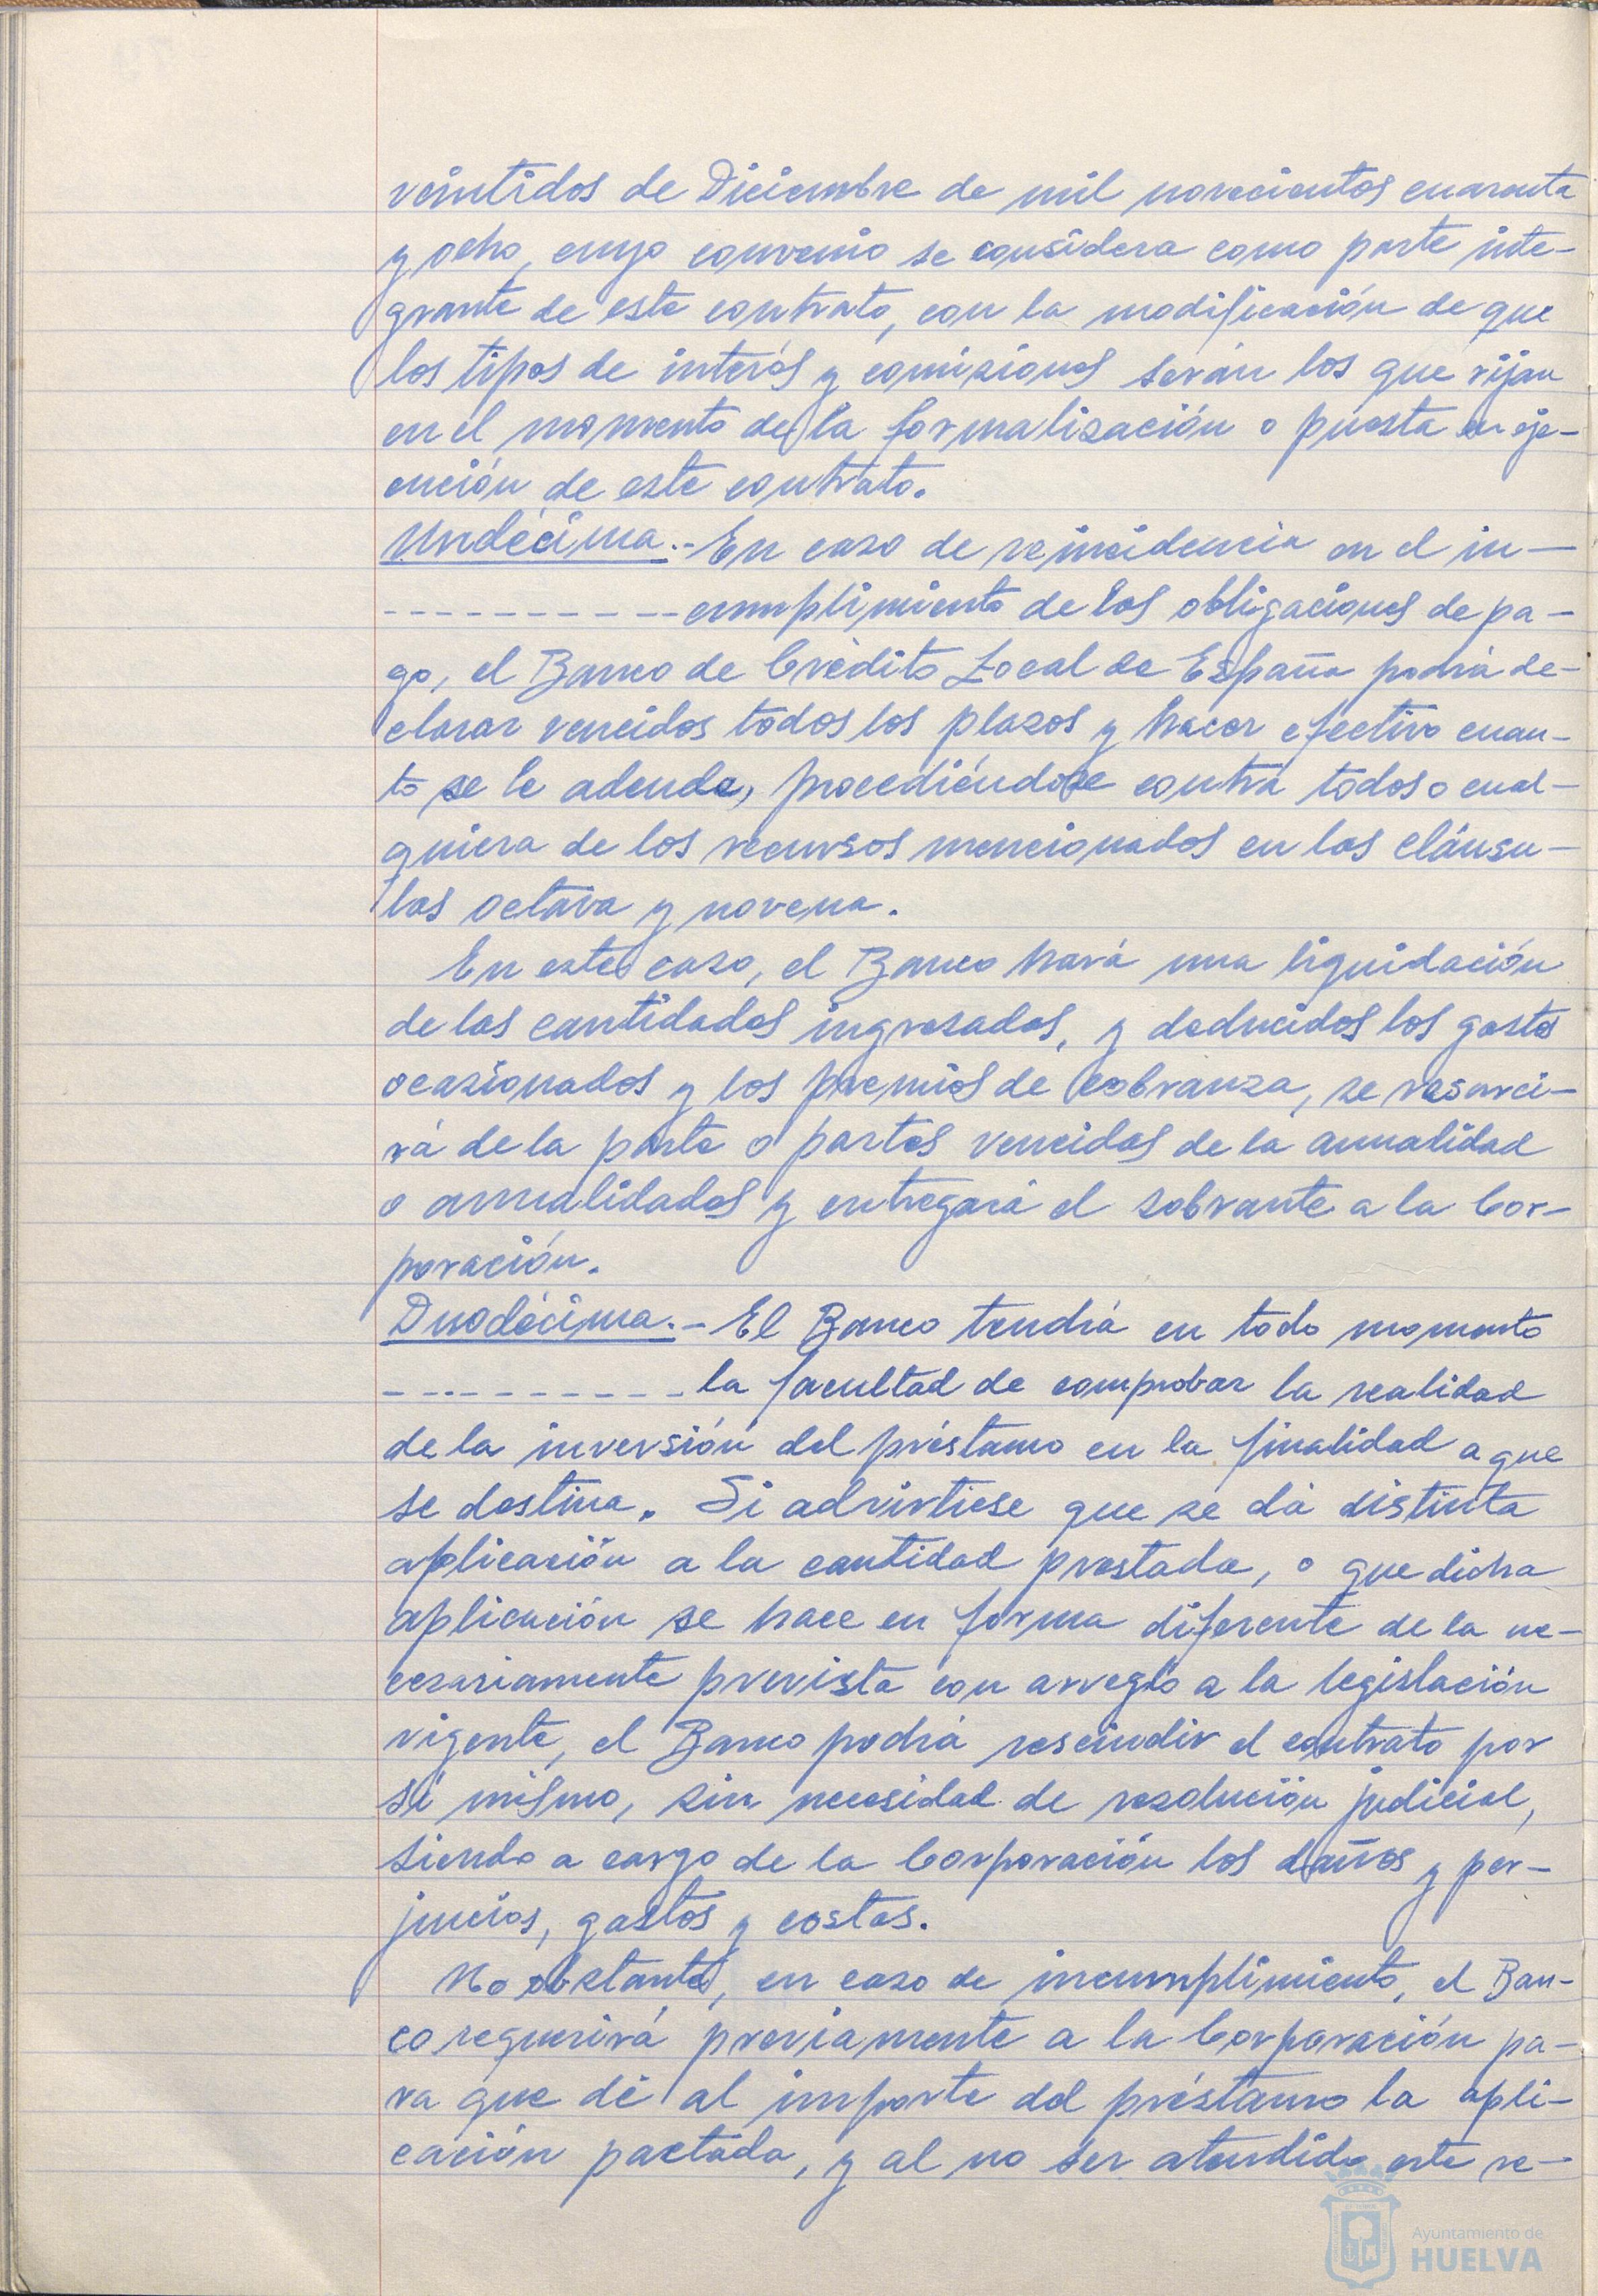 veintidos de Diciembre de mil novecientos cuarenta
y ocho, cuyo convenio se considera como parte inte-
grante de este contrato, con la modificación de que
los tipos de interés y comisiones serán los que rijan
en el momento de la formalización o puesta en eje-
cución de este contrato.
Undécima.- En caso de reincidencia en el in-
---------- cumplimiento de las obligaciones de pa-
go, el Banco de Crédito Local de España podrá de-
clarar vencidos todos los plazos y hacer efectivo cuan-
to se le adeude, procediéndose contra todos o cual-
quiera de los recursos mencionados en las cláusu-
las octava y novena.
En este caso, el Banco hará una liquidación
de las cantidades ingresadas, y deducidos los gastos
ocasionados y los premios de cobranza, se resarci-
rá de la parte o partes vencidas de la anualidad
o anualidades y entregará el sobrante a la Cor-
poración.
Duodécima.- El Banco tendrá en todo momento
---------- la facultad de comprobar la realidad
de la inversión del préstamo en la finalidad a que
se destina. Si advirtiese que se dá distinta
aplicación a la cantidad prestada, o que dicha
aplicación se hace en forma diferente de la ne-
cesariamente prevista con arreglo a la legislación
vigente, el Banco podrá rescindir el contrato por
sí mismo, sin necesidad de resolución judicial,
siendo a cargo de la Corporación los daños y per-
juicios, gastos y costas.
No obstante, en caso de incumplimiento, el Ban-
co requerirá previamente a la Corporación pa-
ra que dé al importe del préstamo la apli-
cación pactada, y al no ser atendido este re-
Ayuntamiento de
HUELVA